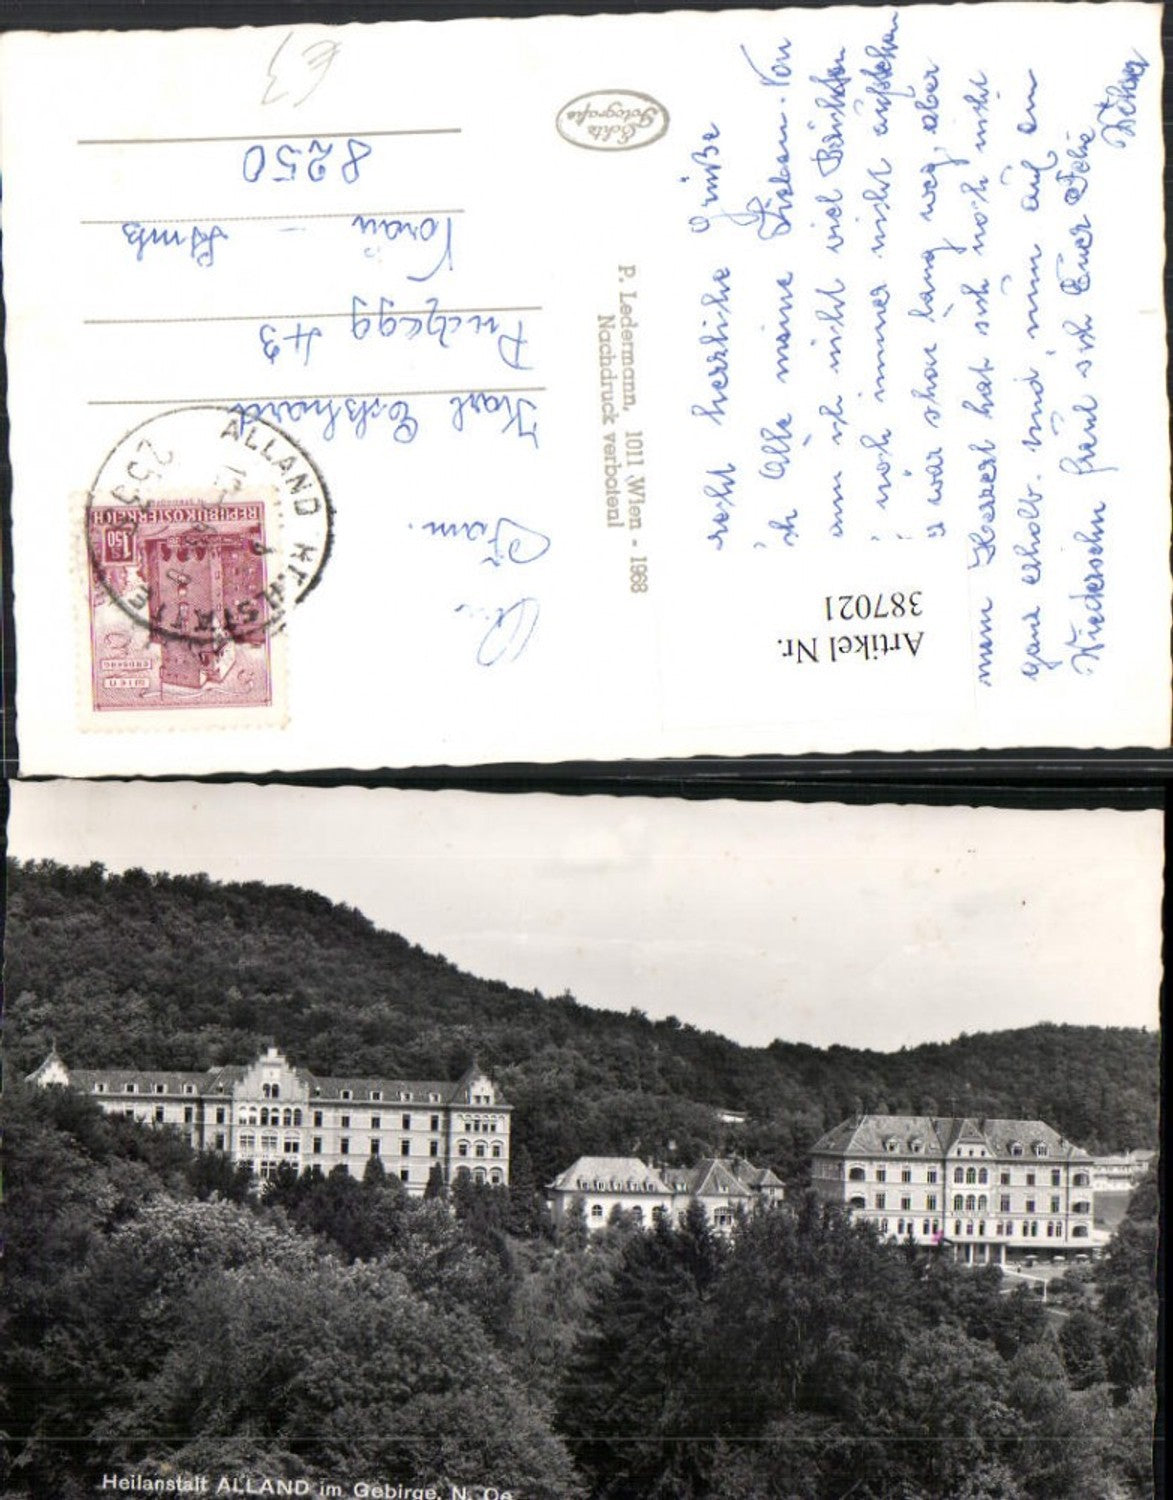 recht herzliche Grüße
Alle meine Lieben. Von
ich nicht viel
noch immer nicht aufstehen
war schon lang weg, aber
mein Herzerl hat sich noch nicht
ganz erholt. Und nun auf ein
Wiedersehn freut sich Euer
An
Fam.
Karl
43
Vorau
8250
Echte
Fotografie
P. Ledermann, 1011 Wien - 1968
Nachdruck verboten!
Artikel Nr.
387021
REPUBLIK ÖSTERREICH
S 1.50
WIEN
ERDBERG
ALLAND HEILSTÄTTE
Heilanstalt ALLAND im Gebirge, N. Oe.